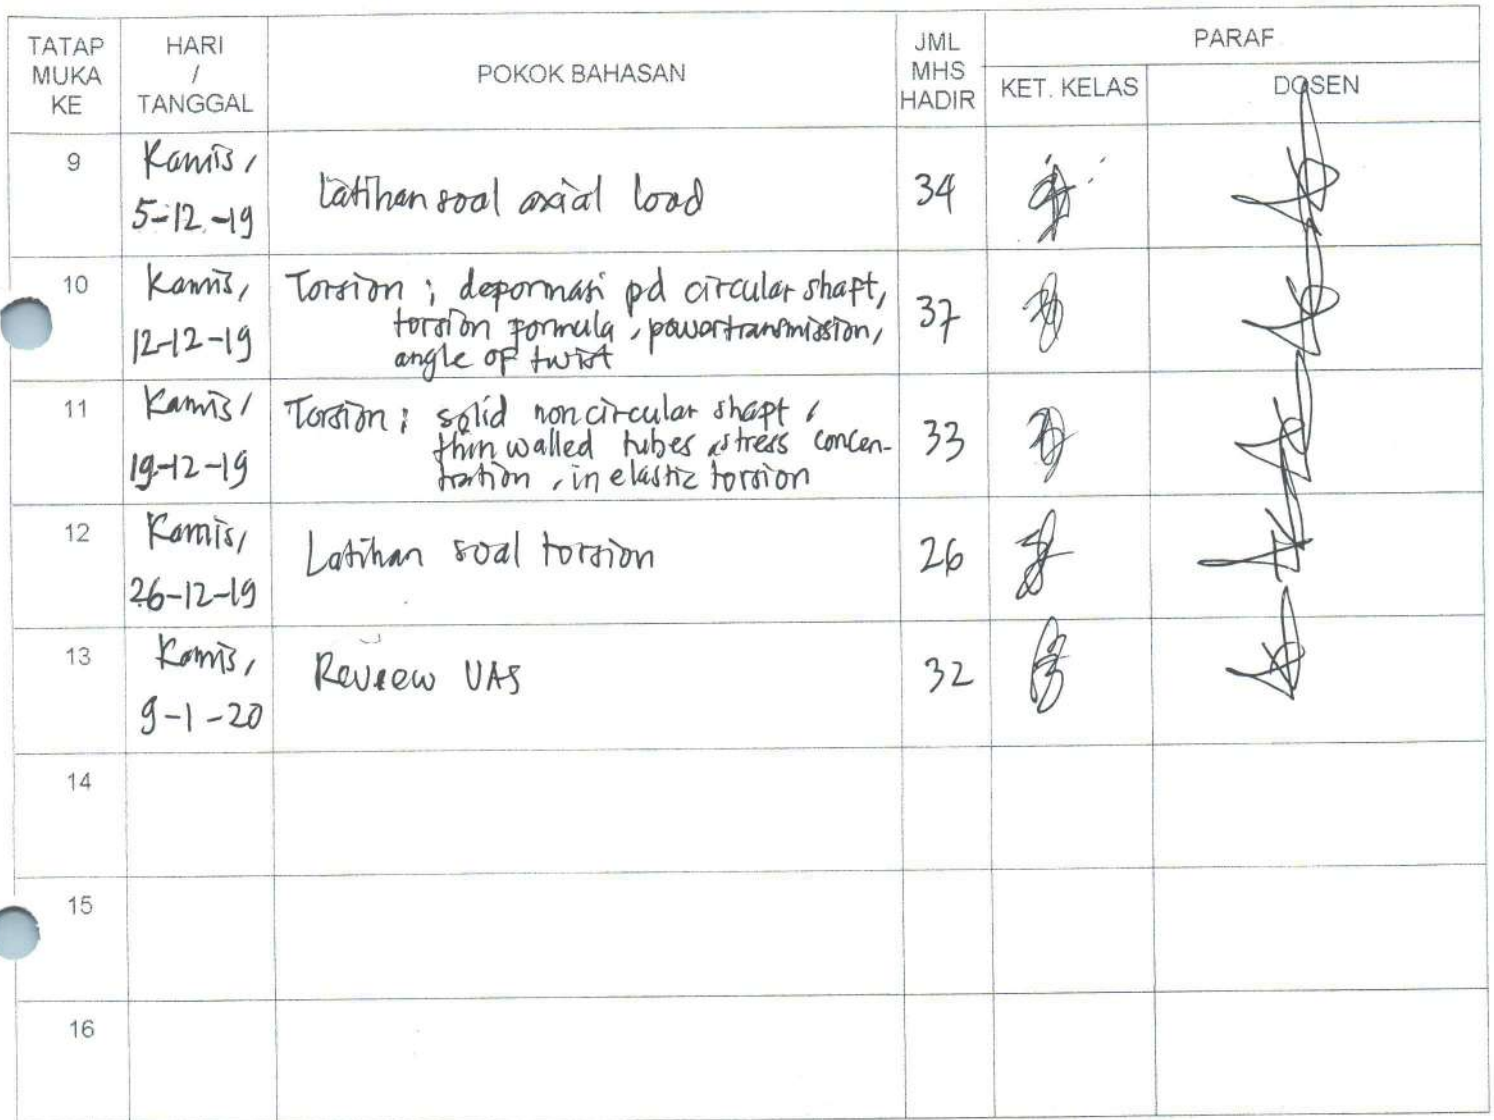 TATAP MUKA KE
HARI / TANGGAL
POKOK BAHASAN
JML MHS HADIR
PARAF
KET. KELAS
DOSEN
9
Kamis,
5-12-19
Latihan soal axial load
34
10
Kamis,
12-12-19
Torsion ; depormasi pd circular shapt,
torsion pormula, powertransmission,
angle of twist
37
11
Kamis,
19-12-19
Torsion ; solid noncircular shapt,
thin walled tubes, stress concen-
tration, in elastic torsion
33
12
Kamis,
26-12-19
Latihan soal torsion
26
13
Kamis,
9-1-20
Review UAS
32
14
15
16